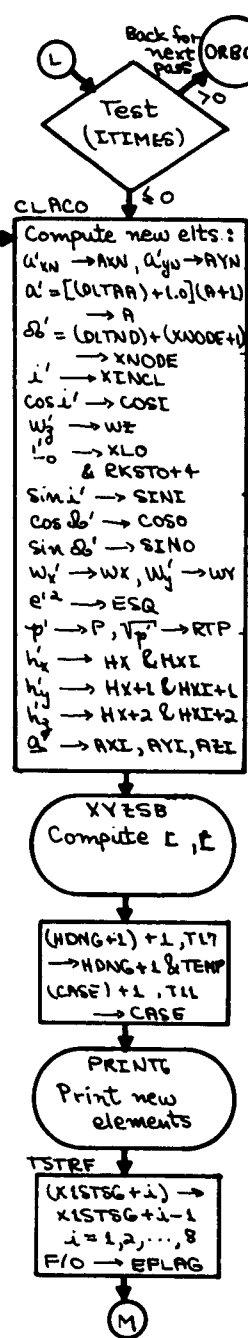 L
Back for
next
pass
ORBC
Test
(ITIMES)
>0
≤0
CLACO
Compute new elts.:
a'xN → AXN, a'yN → AYN
a' = [(DLTAA)+1.0](A+1)
→ A
☊' = (DLTND)+(XNODE+1)
→ XNODE
i' → XINCL
cos i' → COSI
W'z → WZ
L'o → XLO
& RKSTO+4
sin i' → SINI
cos ☊' → COSO
sin ☊' → SINO
Wx' → WX, W'y → WY
e'² → ESQ
p' → P, √p' → RTP
h'x → HX & HXI
h'y → HX+1 & HXI+1
h'z → HX+2 & HXI+2
a → AXI, AYI, AZI
XYZSB
Compute r, ṙ
(HDNG+1)+1, T17
→ HDNG+1 & TEMP
(CASE)+1, T11
→ CASE
PRINT6
Print new
elements
TSTRF
(X1STSG+i) →
X1STSG+i-1
i = 1,2,...,8
F/O → EPLAG
M